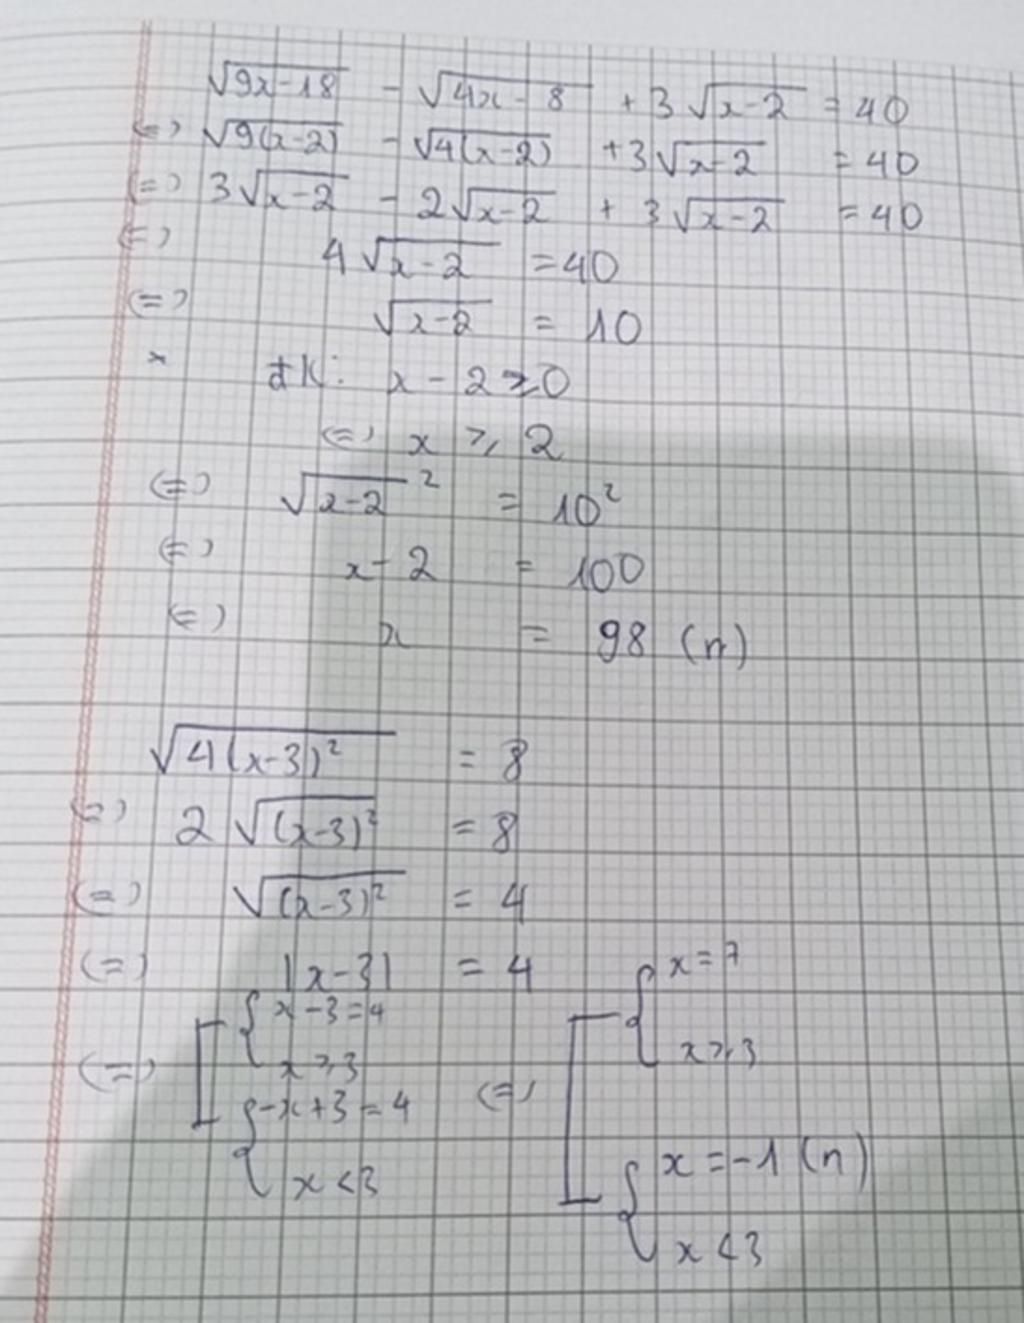 √9x-18 - √4x-8 + 3√x-2 = 40
(=) √9(x-2) - √4(x-2) + 3√x-2 = 40
(=) 3√x-2 - 2√x-2 + 3√x-2 = 40
(=) 4√x-2 = 40
(=) √x-2 = 10
* đk: x - 2 ≥ 0
(=) x ≥ 2
(=) √x-2² = 10²
(=) x - 2 = 100
(=) x = 98 (n)
√4(x-3)² = 8
(=) 2√(x-3)² = 8
(=) √(x-3)² = 4
(=) |x-3| = 4
(=) [ { x-3=4
x ≥ 3
{ -x+3=4
x < 3
(=) [ { x=7
x ≥ 3
{ x=-1 (n)
x < 3